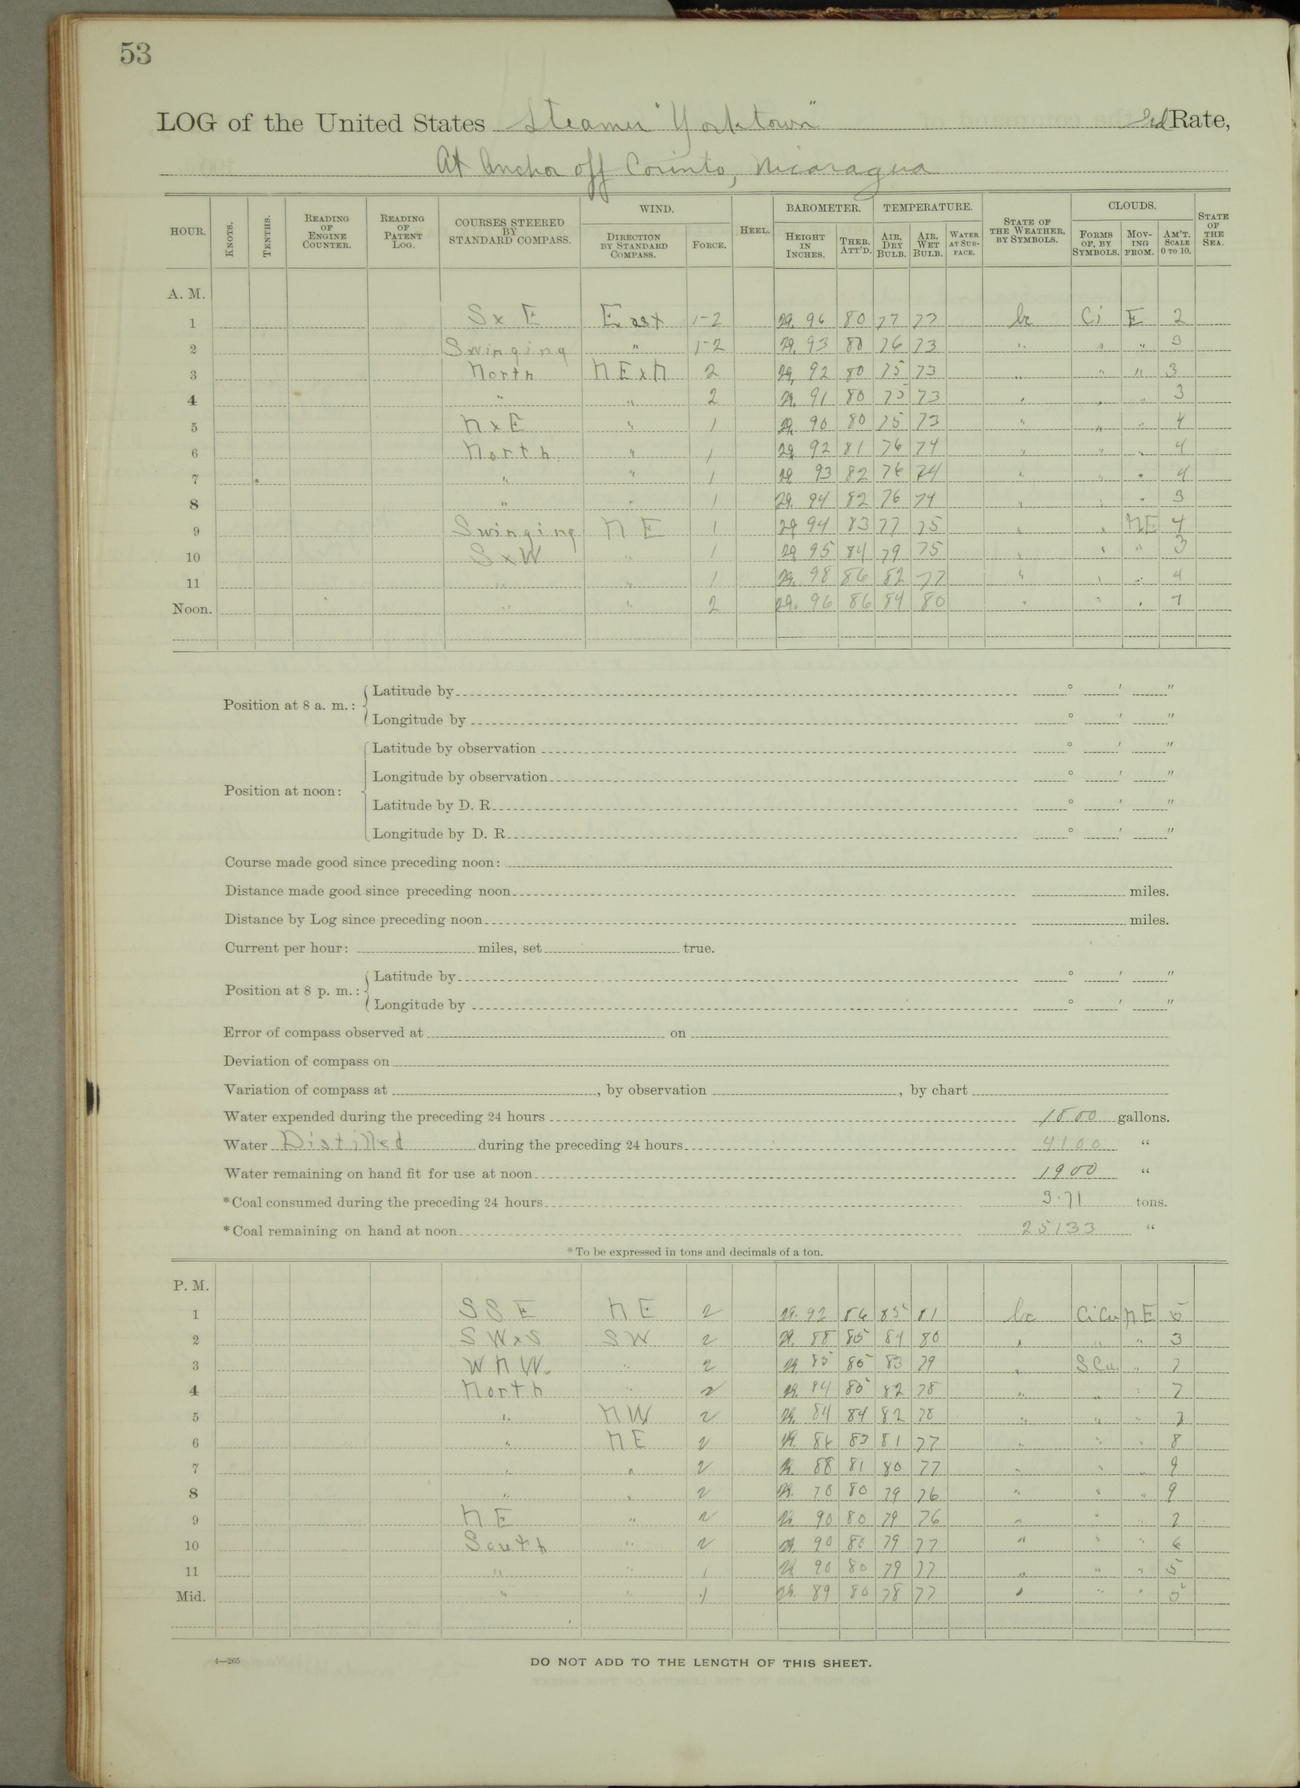 53
LOG of the United States Steamer "Yorktown" 3rd Rate,
At Anchor off Corinto, Nicaragua
HOUR. KNOTS. TENTHS. READING OF ENGINE COUNTER. READING OF PATENT LOG. COURSES STEERED BY STANDARD COMPASS. WIND. DIRECTION BY STANDARD COMPASS. FORCE. HEEL. BAROMETER. HEIGHT IN INCHES. THER. ATT'D. TEMPERATURE. AIR. DRY BULB. AIR. WET BULB. WATER AT SURFACE. STATE OF THE WEATHER, BY SYMBOLS. CLOUDS. FORMS OF, BY SYMBOLS. MOVING FROM. AM'T. SCALE 0 TO 10. STATE OF THE SEA.
A. M.
1 SxE East 1-2 29.96 80 77 77 bc Ci E 2
2 Swinging " 1-2 29.93 80 76 73 " " " 3
3 North NExN 2 29.92 80 75 73 " " " 3
4 " " 2 29.91 80 75 73 " " " 3
5 NxE " 1 29.90 80 75 73 " " " 4
6 North " 1 29.92 81 76 74 " " " 4
7 " " 1 29 93 82 76 74 " " " 4
8 " " 1 29.94 82 76 74 " " " 3
9 Swinging NE 1 29 94 83 77 75 " " NE 4
10 SxW " 1 29 95 84 79 75 " " " 3
11 " " 1 29.98 86 82 77 " " " 4
Noon. " " 2 29.96 86 84 80 " " " 7
Position at 8 a. m.: Latitude by ° ′ ″
Longitude by ° ′ ″
Position at noon: Latitude by observation ° ′ ″
Longitude by observation ° ′ ″
Latitude by D. R. ° ′ ″
Longitude by D. R. ° ′ ″
Course made good since preceding noon:
Distance made good since preceding noon miles.
Distance by Log since preceding noon miles.
Current per hour: miles, set true.
Position at 8 p. m.: Latitude by ° ′ ″
Longitude by ° ′ ″
Error of compass observed at on
Deviation of compass on
Variation of compass at , by observation , by chart
Water expended during the preceding 24 hours gallons.
Water Distilled during the preceding 24 hours 4100 "
Water remaining on hand fit for use at noon 1900 "
*Coal consumed during the preceding 24 hours 3.71 tons.
*Coal remaining on hand at noon 25133 "
*To be expressed in tons and decimals of a ton.
P. M.
1 SSE NE 2 29.92 86 85 81 bc CiCu NE 5
2 SWxS SW 2 29.88 85 84 80 " " " 3
3 WNW. " 2 29.85 85 83 79 " SCu " 7
4 North " 2 29.84 85 82 78 " " " 7
5 " NW 2 29.84 84 82 78 " " " 7
6 " NE 2 29.86 83 81 77 " " " 8
7 " " 2 29.88 81 80 77 " " " 9
8 " " 2 29. 80 79 76 " " " 9
9 NE " 2 29. 90 80 79 76 " " " 7
10 South " 2 29. 90 80 79 77 " " " 6
11 " " 1 29 90 80 79 77 " " " 5
Mid. " " 1 29.89 80 78 77 " " " 5
4—265
DO NOT ADD TO THE LENGTH OF THIS SHEET.